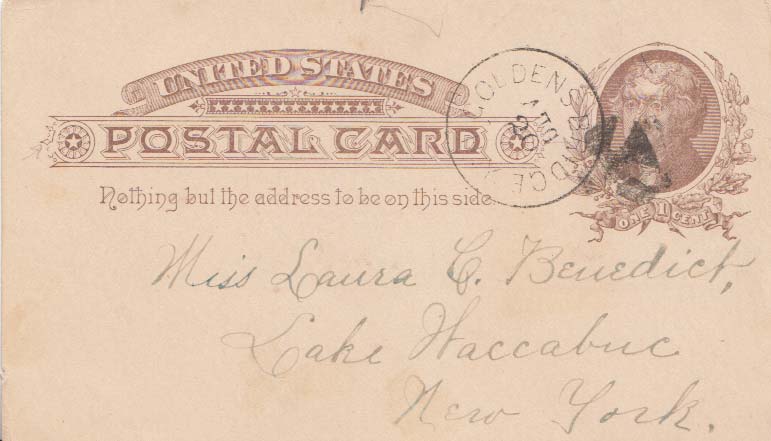 UNITED STATES
POSTAL CARD
Nothing but the address to be on this side.
GOLDENS BRIDGE
20
ONE 1 CENT
Miss Laura C. Benedict,
Lake Waccabuc
New York.